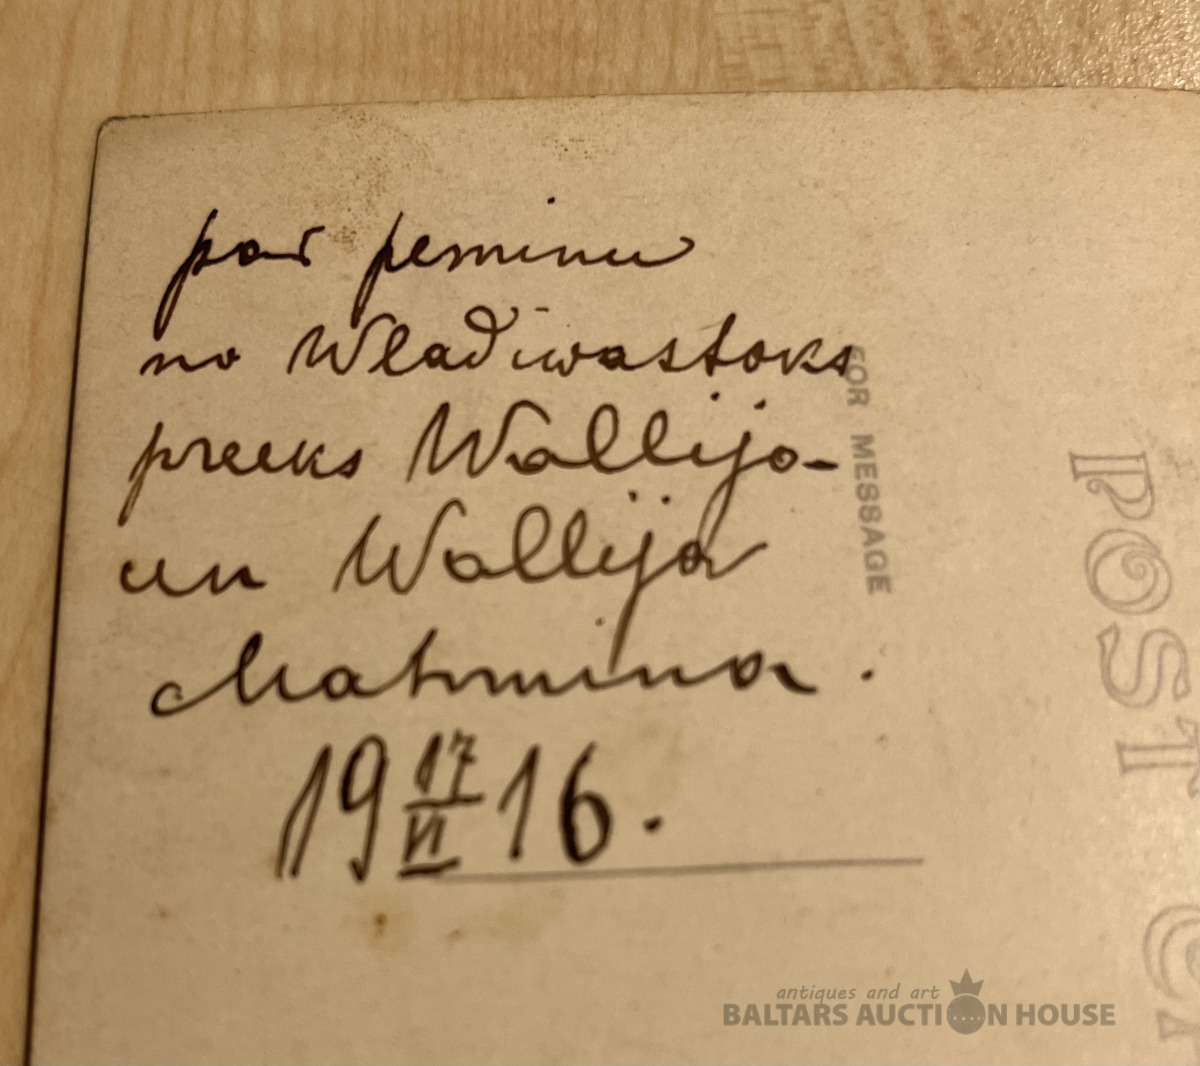 par peminu
no Wladiwastoks
preeks Wallijo-
un Wallija
Matmina.
19 17/VI 16.
FOR MESSAGE
POST
antiques and art
BALTARS AUCTION HOUSE